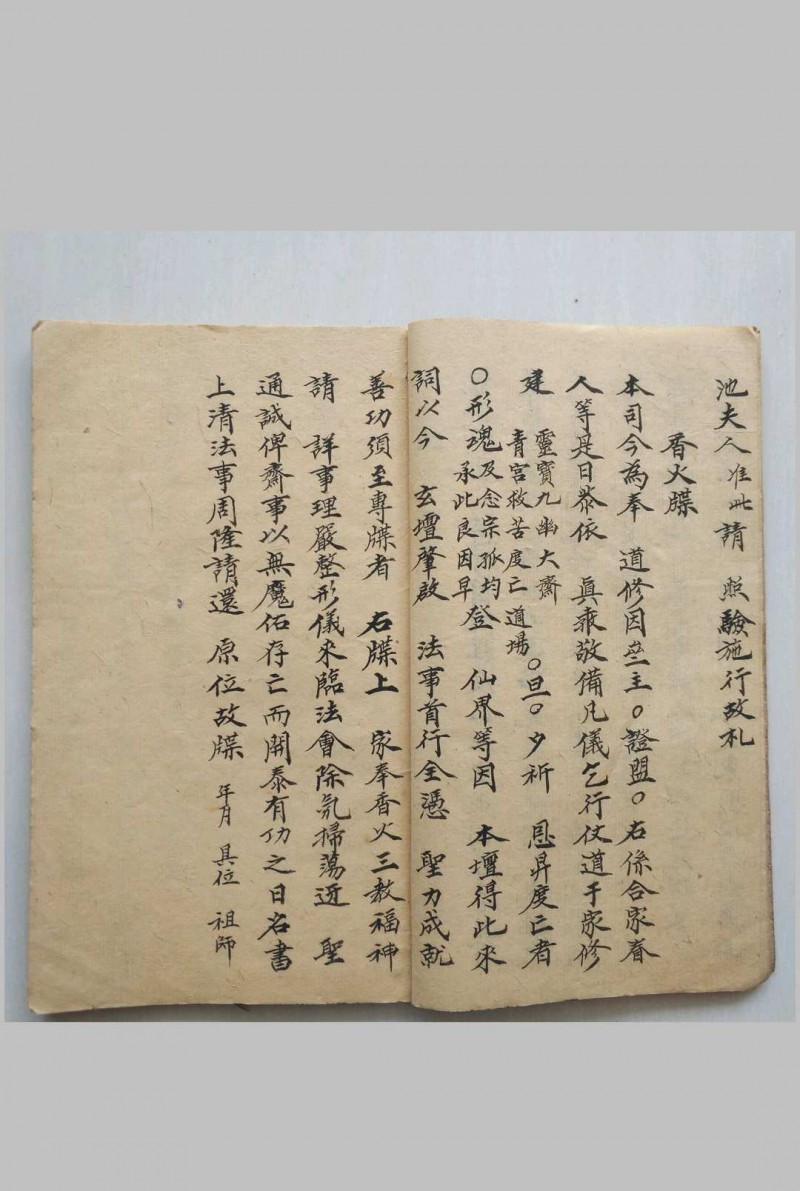 池夫人准此請　照驗施行故札
香火牒
本司今為奉　道修因
主○證盟○右係合家眷
人等是日恭依　真乘敬備凡儀乞行仗道于家修
建　靈寶九幽大齋
青宮救苦度亡道場○旦○夕祈　恩昇度亡者
○形魂及念宗孤均
承此良因早登　仙界等因　本壇得此來
詞以今　玄壇肇啟　法事首行全憑　聖力成就
善功須至專牒者　右牒上　家奉香火三教福神
請　詳事理嚴整形儀來臨法會除氛掃蕩迓　聖
通誠俾齋事以無魔佑存亡而開泰有功之日名書
上清法事周隆請還　原位故牒　年月　具位　祖師